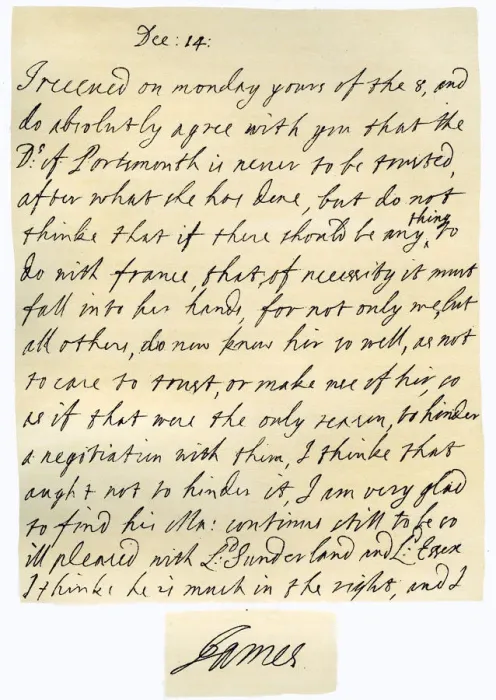 Dec: 14:
I receued on monday yours of the 8, and
do absolutly agree with you that the
Ds. of Portsmouth is never to be trusted,
after what she has done, but do not
thinke that if there should be any thing to
do with france, that, of necessity it must
fall into her hands, for not only we, but
all others, do now know hir so well, as not
to care to trust, or make use of hir, so
as if that were the only reason, to hinder
a negotiation with them, I thinke that
aught not to hinder it, I am very glad
to find his Ma: continus still to be so
ill pleased with Ld. Sunderland and Ld. Essex
I thinke he is much in the right, and I
James